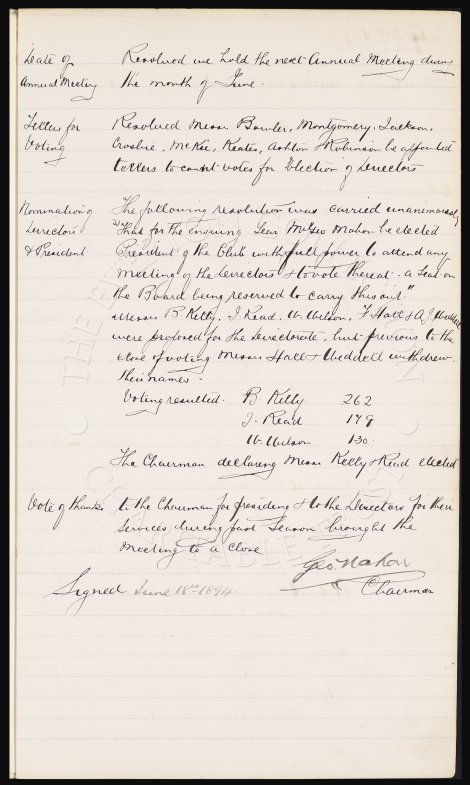 Date of
Annual Meeting
Resolved we hold the next Annual Meeting during
the month of June.
Tellers for
Voting
Resolved Messrs Bowler, Montgomery, Jackson,
Crosbie, McKie, Keates, Ashton & Robinson be appointed
tellers to count votes for Election of Directors
Nomination of
Directors
& President
The following resolution was carried unanimously
"That for the ensuing Year Mr Geo Mahon be elected
President of the Club with full power to attend any
meeting of the Directors & to vote thereat - a Seat on
the Board being reserved to carry this out"
Messrs B Kelly, J. Read, W. Wilson, F Hall & A. J. Weddell
were proposed for the Directorate, but previous to the
close of voting Messrs Hall & Weddell withdrew
their names -
Voting resulted - B. Kelly 262
J. Read 179
W. Wilson 130
The Chairman declaring Messrs Kelly & Read elected
Vote of thanks
to the Chairman for presiding & to the Directors for their
services during past Season brought the
Meeting to a close
Geo Mahon
Chairman
Signed June 18th 1894